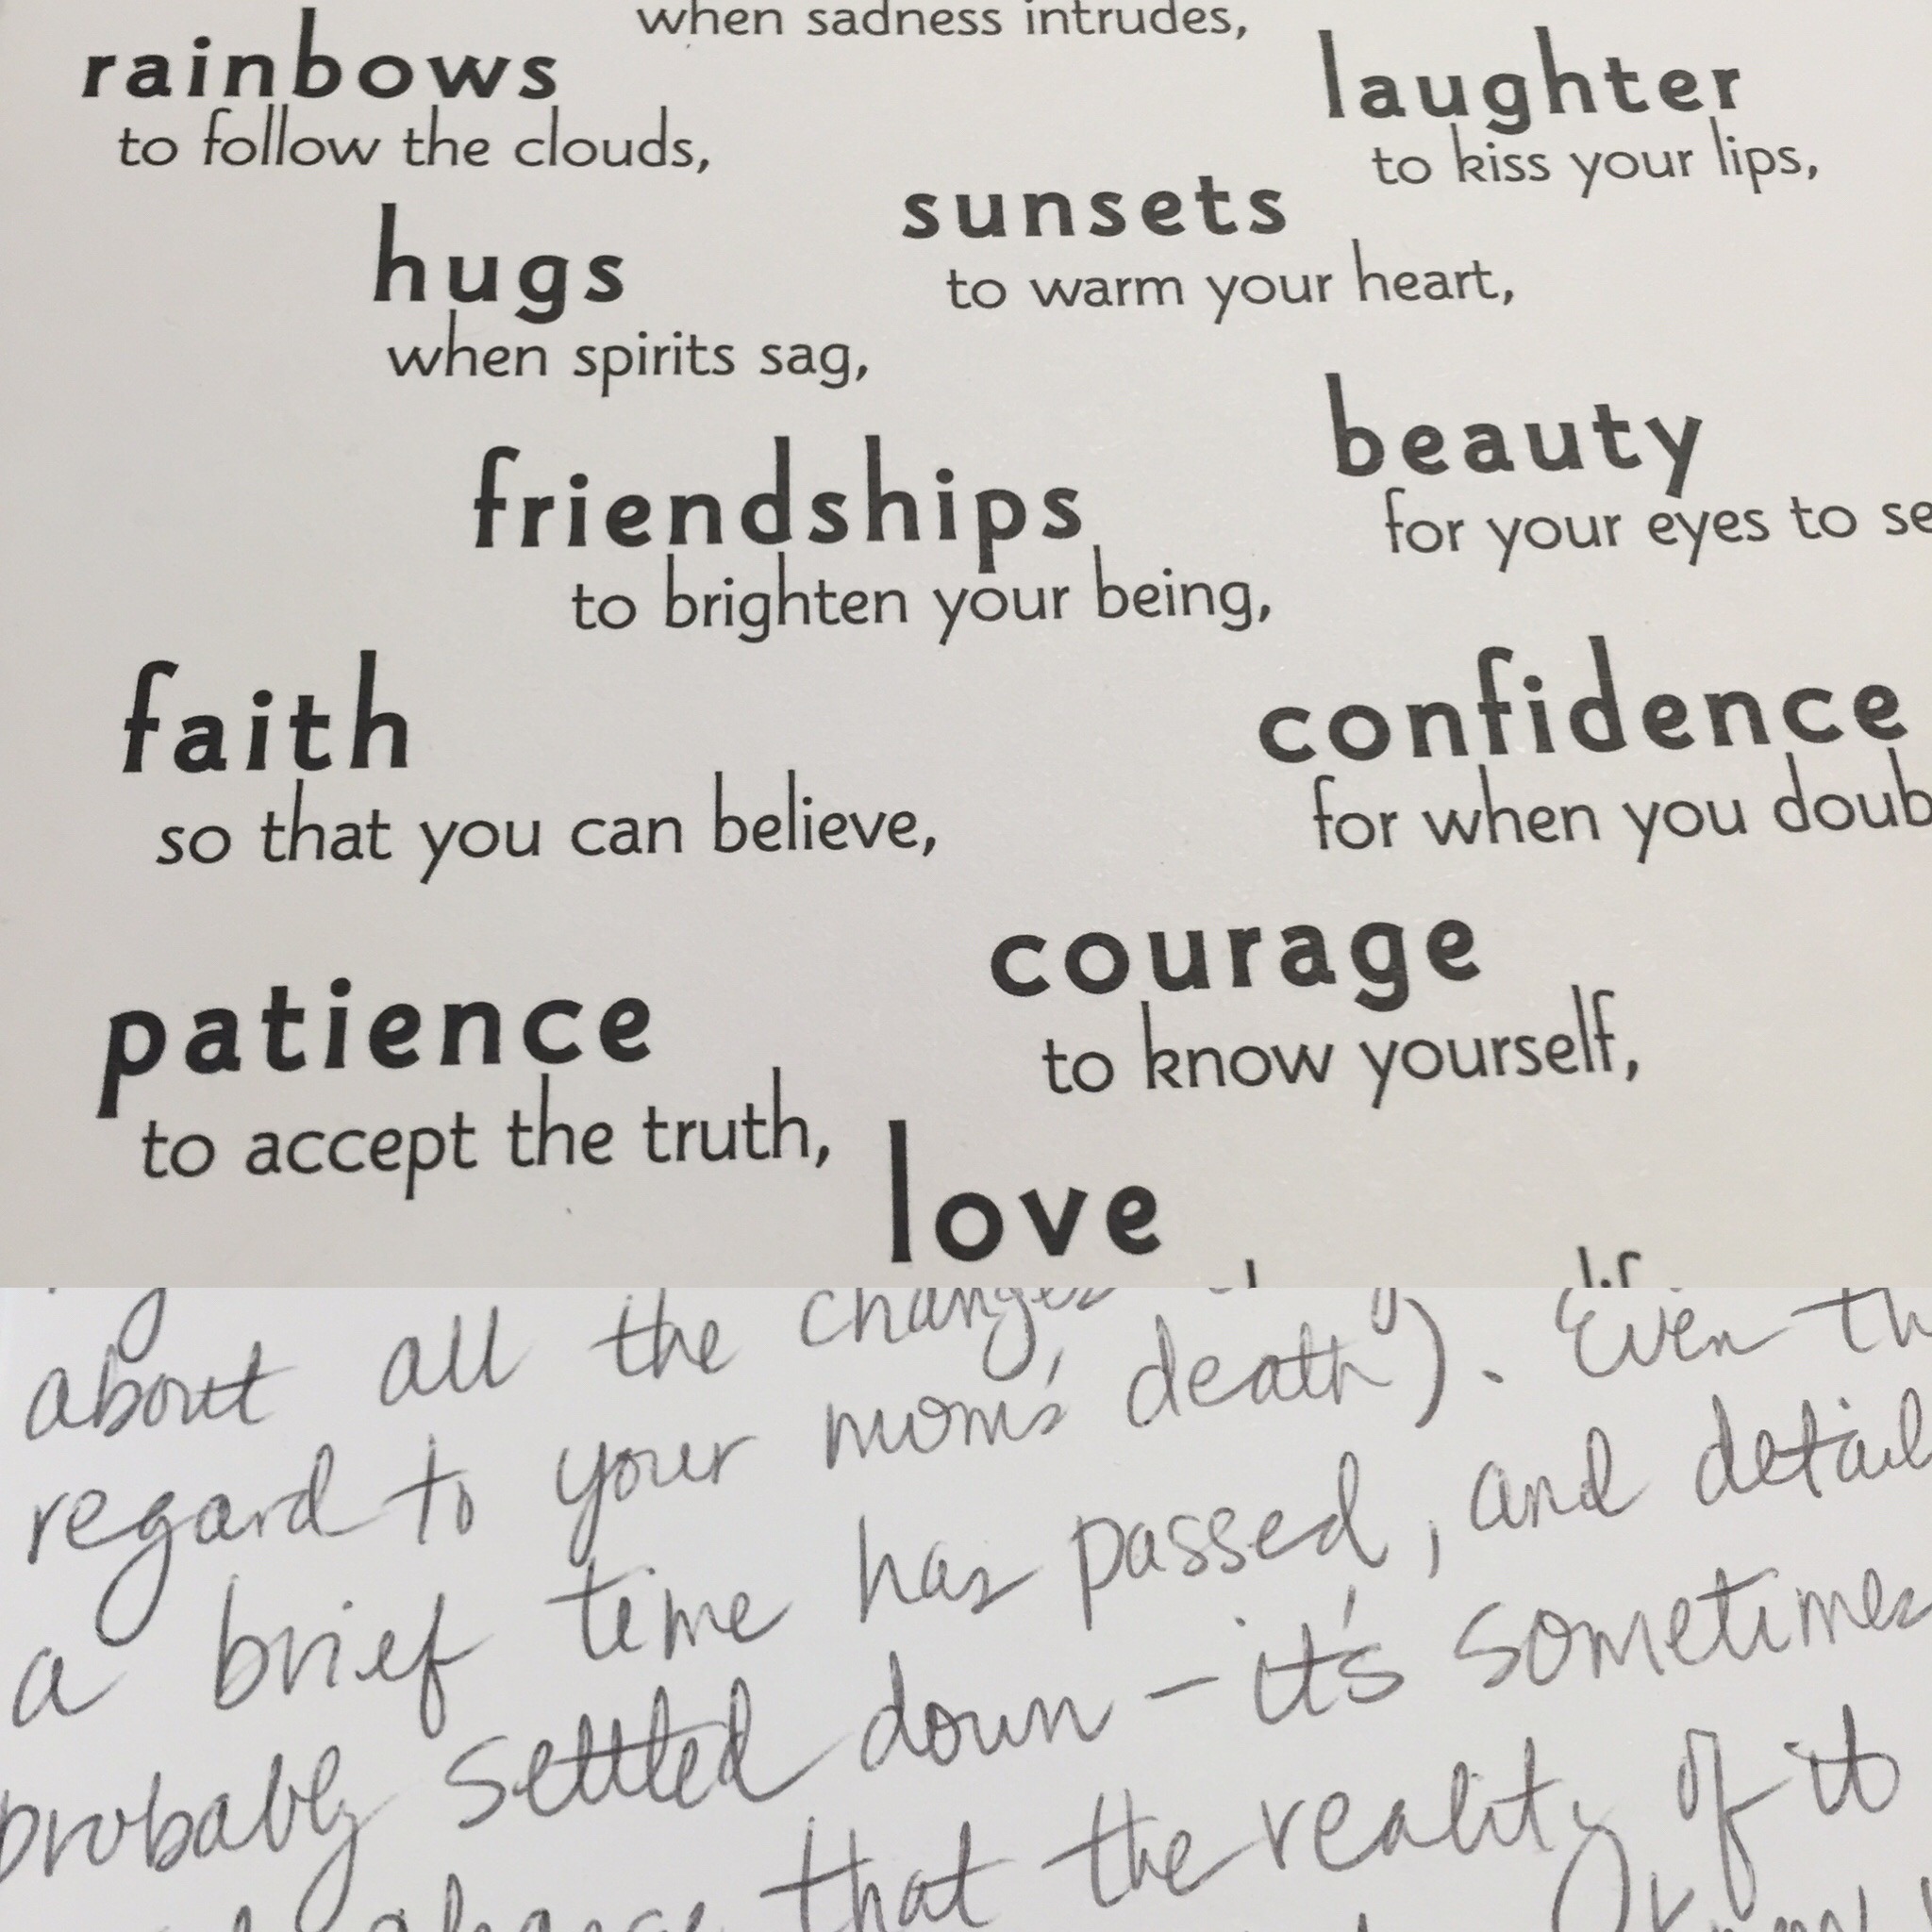 when sadness intrudes,
rainbows
to follow the clouds,
laughter
to kiss your lips,
hugs
when spirits sag,
sunsets
to warm your heart,
friendships
to brighten your being,
beauty
for your eyes to se
faith
so that you can believe,
confidence
for when you doub
patience
to accept the truth,
courage
to know yourself,
love
about all the changes
regard to your mom's death). Even th
a brief time has passed, and detail
probably settled down - it's sometimes
that the reality of it